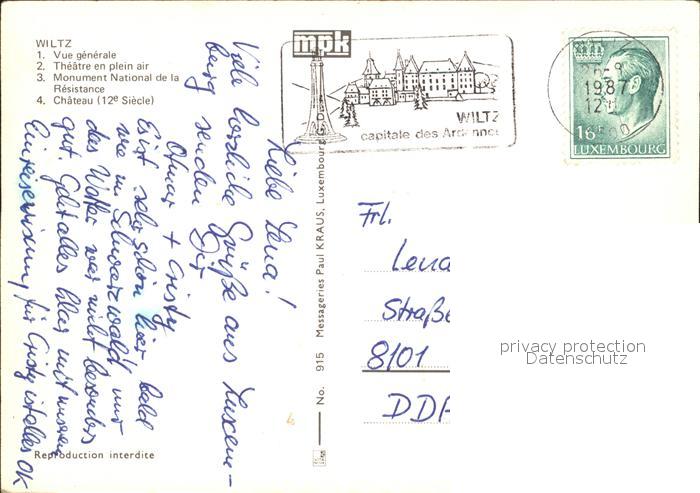 WILTZ
1. Vue générale
2. Théâtre en plein air
3. Monument National de la
Résistance
4. Château (12e Siècle)
mpk
WILTZ
capitale des Ardennes
1987
12
16F
LUXEMBOURG
Liebe Lena!
Viele herzliche Grüße aus Luxem-
burg senden Dir
Otmar + Cristy
Es ist sehr schön hier bald
wie im Schwarzwald nur
das Wetter war nicht besonders
gut. Geht alles klar mit unserer
Einreiseweisung für Cristy ist alles OK
No. 915 Messageries Paul KRAUS, Luxembourg G.D.
Frl.
Lena
Straße
8101
DDR
privacy protection
Datenschutz
Reproduction interdite